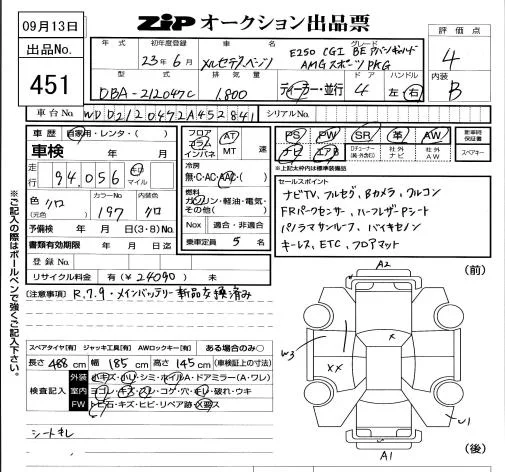 09月13日
出品No.
451
ZIP オークション出品票
年式 初年度登録 車名 グレード
23年6月 メルセデスベンツ E250 CGI BE アバンギャルド
AMG スポーツ PKG
型式 排気量 ドア ハンドル
DBA-212047C 1,800 ディーラー・並行 4 左・右
評価点
4
内装
B
車台No. WDD2120472A452841 シリアルNo.
車歴 自家用・レンタ・( )
車検 年 月
走行 94,056 キロ マイル
色(元色) クロ カラーNo 197 内装色 クロ
予備検 年 月 日(3・8)No.
書類有効期限 年 月 日迄
登録No.
リサイクル料金 有(¥24090) 未
フロア コラム インパネ AT MT 速
冷房
無・C・AC・AAC・( )
燃料
ガソリン・軽油・電気・その他( )
Nox 適合・非適合
乗車定員 5 名
PS PW SR 革 AW
ナビ エアB Dチューナー(純・外含む) 社外ナビ 社外AW
新車時保証書
スペアキー
※上記太枠内は標準装備品
セールスポイント
ナビTV、フルセグ、Bカメラ、クルコン
FRパークセンサー、ハーフレザーPシート
パノラマサンルーフ、バイキセノン
キーレス、ETC、フロアマット
※ご記入の際はボールペンで強くご記入下さい。
[注意事項] R.7.9・メインバッテリー新品交換済み
スペアタイヤ[有] ジャッキ工具[有] AWロックキー[有] ある場合のみ○
長さ 488 cm 幅 185 cm 高さ 145 cm (車検証上の寸法)
検査記入
外装 小キズ・小U・シミ・ホイルA・ドアミラー(A・ワレ)
室内 ヨゴレ・キズ・スレ・コゲ・穴・キレ・破れ・ウキ
FW トビ石・キズ・ヒビ・リペア跡・X要ス
シートキレ
A2
(前)
W3
X
XX
U1
A1
(後)